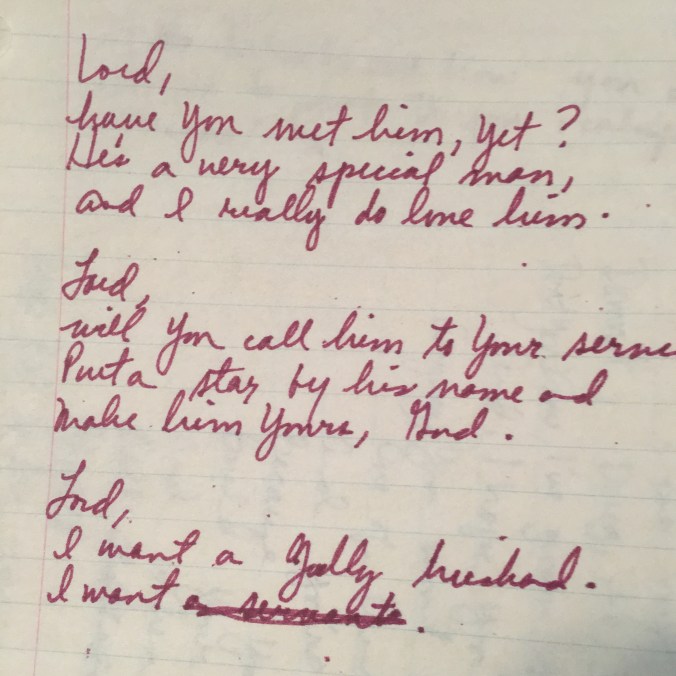 Lord,
have You met him, yet?
He's a very special man,
and I really do love him.
Lord,
will You call him to Your
Put a star by his name and
Make him Yours, God.
Lord,
I want a Godly husband.
I want a servant